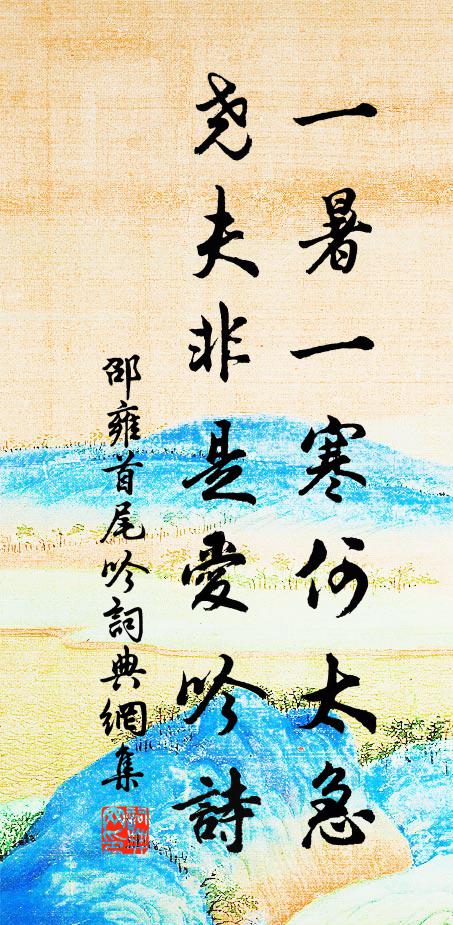 一暑一寒何太急
堯夫非是愛吟詩
邵雍首尾吟詞典網集